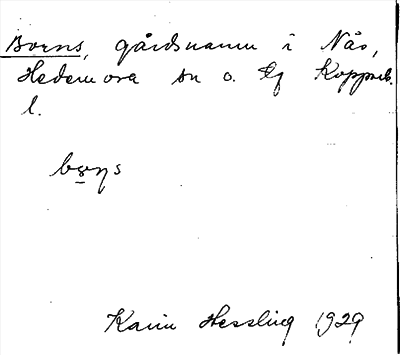 Borns, gårdsnamn i Nås,
Hedemora sn o. tg Kopparb.
l.
bo̤ṇs
Karin Hessling 1929